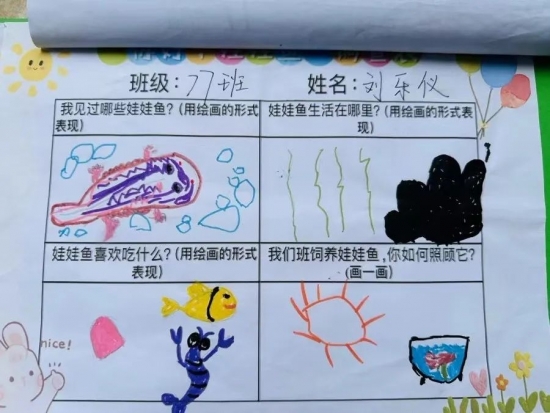 班级：17班 姓名：刘乐仪
我见过哪些娃娃鱼？(用绘画的形式
表现)
娃娃鱼生活在哪里？(用绘画的形式表
现)
娃娃鱼喜欢吃什么？(用绘画的形式
表现)
我们班饲养娃娃鱼,你如何照顾它？
(画一画)
nice!